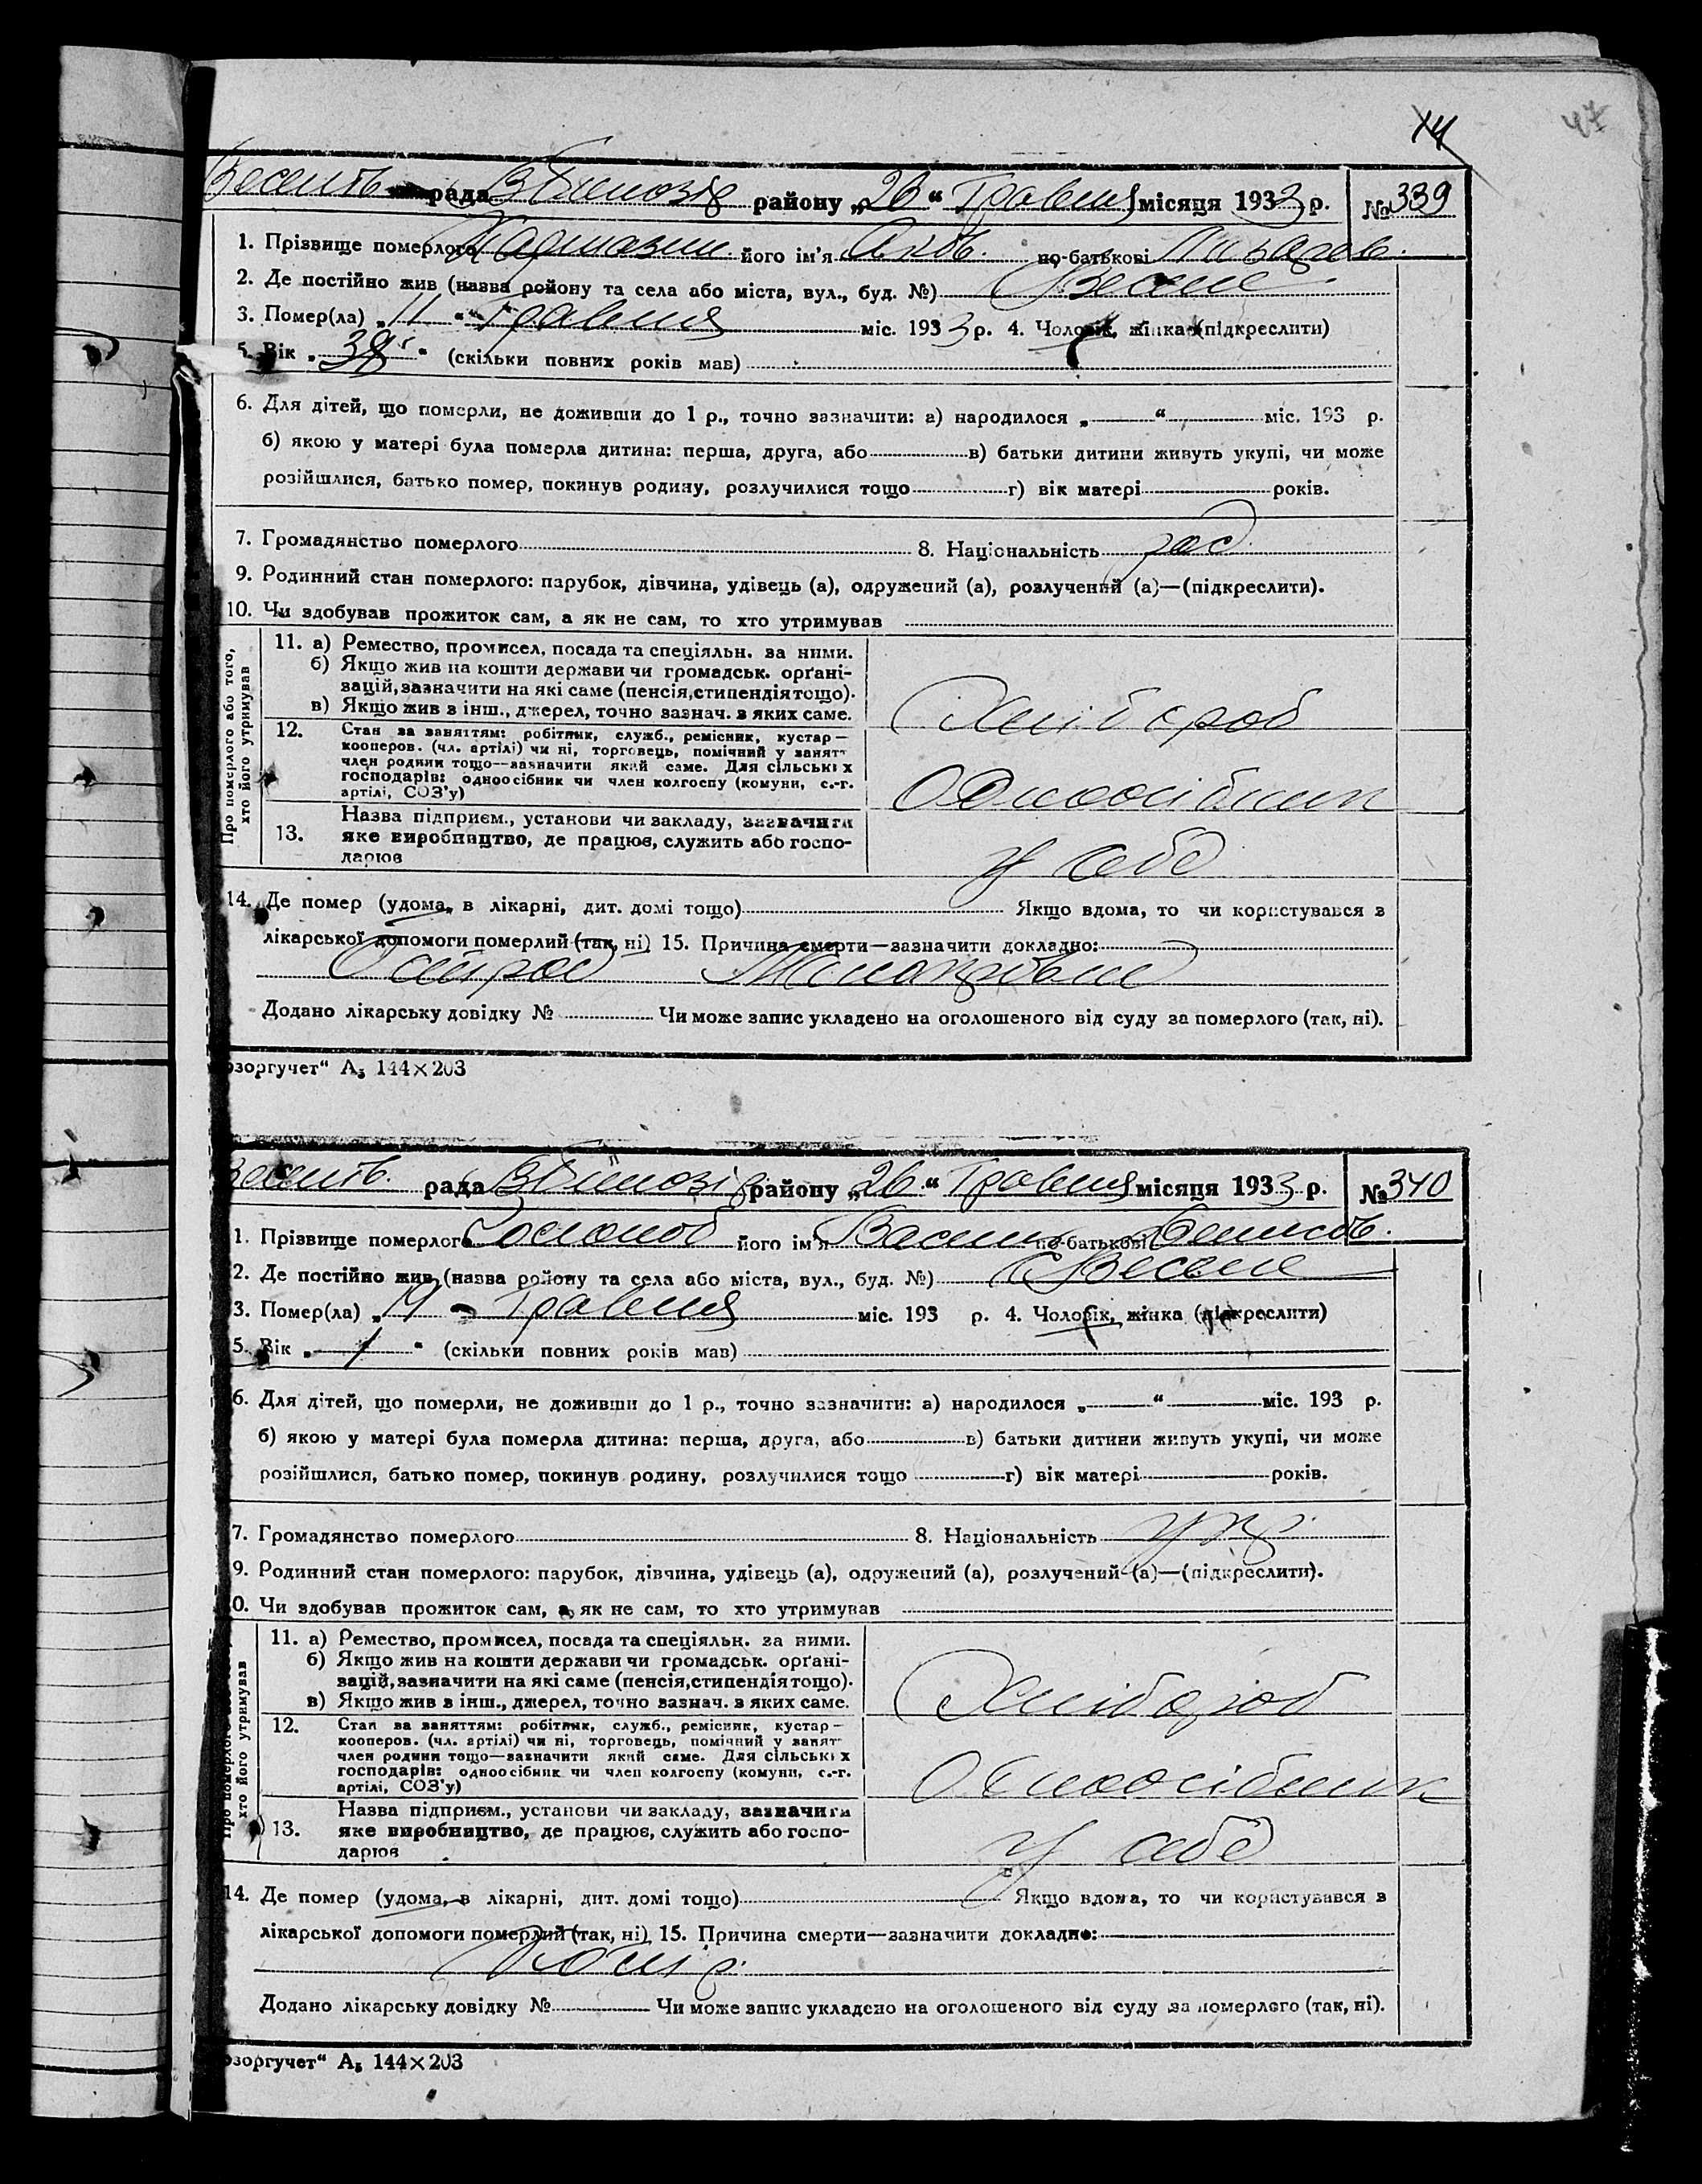 14 47
рада району „26“ Травня місяця 1933 р. № 339
1. Прізвище померлого його ім'я Яків. по-батькові
2. Де постійно жив (назва району та села або міста, вул., буд. №) Веселе
3. Помер(ла) „11“ Травня міс. 1933 р. 4. Чоловік, жінка (підкреслити)
5. Вік „38“ (скільки повних років мав)
6. Для дітей, що померли, не доживши до 1 р., точно зазначити: а) народилося „ “ міс. 193 р.
б) якою у матері була померла дитина: перша, друга, або в) батьки дитини живуть укупі, чи може
розійшлися, батько помер, покинув родину, розлучилися тощо г) вік матері років.
7. Громадянство померлого 8. Національність
9. Родинний стан померлого: парубок, дівчина, удівець (а), одружений (а), розлучений (а)—(підкреслити).
10. Чи здобував прожиток сам, а як не сам, то хто утримував
Про померлого або того,
хто його утримував
11. а) Ремество, промисел, посада та спеціяльн. за ними.
б) Якщо жив на кошти держави чи громадськ. орґані-
зацій, зазначити на які саме (пенсія, стипендія тощо).
в) Якщо жив з інш., джерел, точно зазнач. з яких саме.
Хлібороб
12. Стан за заняттям: робітник, служб., ремісник, кустар—
кооперов. (чл. артілі) чи ні, торговець, помічний у занятт
член родини тощо—зазначити який саме. Для сільських
господарів: одноосібник чи член колгоспу (комуни, с.-г.
артілі, СОЗ'у)
Одноосібник
13. Назва підприєм., установи чи закладу, зазначити
яке виробництво, де працює, служить або госпо-
дарює
У себе
14. Де помер (удома, в лікарні, дит. домі тощо) Якщо вдома, то чи користувався з
лікарської допомоги померлий (так, ні) 15. Причина смерти—зазначити докладно:
Додано лікарську довідку № Чи може запис укладено на оголошеного від суду за померлого (так, ні).
зоргучет“ А₅ 144×203
рада району „26“ Травня місяця 1933 р. № 340
1. Прізвище померлого його ім'я Василь по-батькові Денисов.
2. Де постійно жив (назва району та села або міста, вул., буд. №) Веселе
3. Помер(ла) Травня міс. 193 р. 4. Чоловік, жінка (підкреслити)
5. Вік „1“ (скільки повних років мав)
6. Для дітей, що померли, не доживши до 1 р., точно зазначити: а) народилося „ “ міс. 193 р.
б) якою у матері була померла дитина: перша, друга, або в) батьки дитини живуть укупі, чи може
розійшлися, батько помер, покинув родину, розлучилися тощо г) вік матері років.
7. Громадянство померлого 8. Національність укр.
9. Родинний стан померлого: парубок, дівчина, удівець (а), одружений (а), розлучений (а)—(підкреслити).
0. Чи здобував прожиток сам, а як не сам, то хто утримував
хто його утримував
11. а) Ремество, промисел, посада та спеціяльн. за ними.
б) Якщо жив на кошти держави чи громадськ. орґані-
зацій, зазначити на які саме (пенсія, стипендія тощо).
в) Якщо жив з інш., джерел, точно зазнач. з яких саме.
Хлібороб
12. Стан за заняттям: робітник, служб., ремісник, кустар—
кооперов. (чл. артілі) чи ні, торговець, помічний у занятт
член родини тощо—зазначити який саме. Для сільських
господарів: одноосібник чи член колгоспу (комуни, с.-г.
артілі, СОЗ'у)
Одноосібник
13. Назва підприєм., установи чи закладу, зазначити
яке виробництво, де працює, служить або госпо-
дарює
У себе
14. Де помер (удома, в лікарні, дит. домі тощо) Якщо вдома, то чи користувався з
лікарської допомоги померлий (так, ні) 15. Причина смерти—зазначити докладно:
Додано лікарську довідку № Чи може запис укладено на оголошеного від суду за померлого (так, ні).
зоргучет“ А₅ 144×203